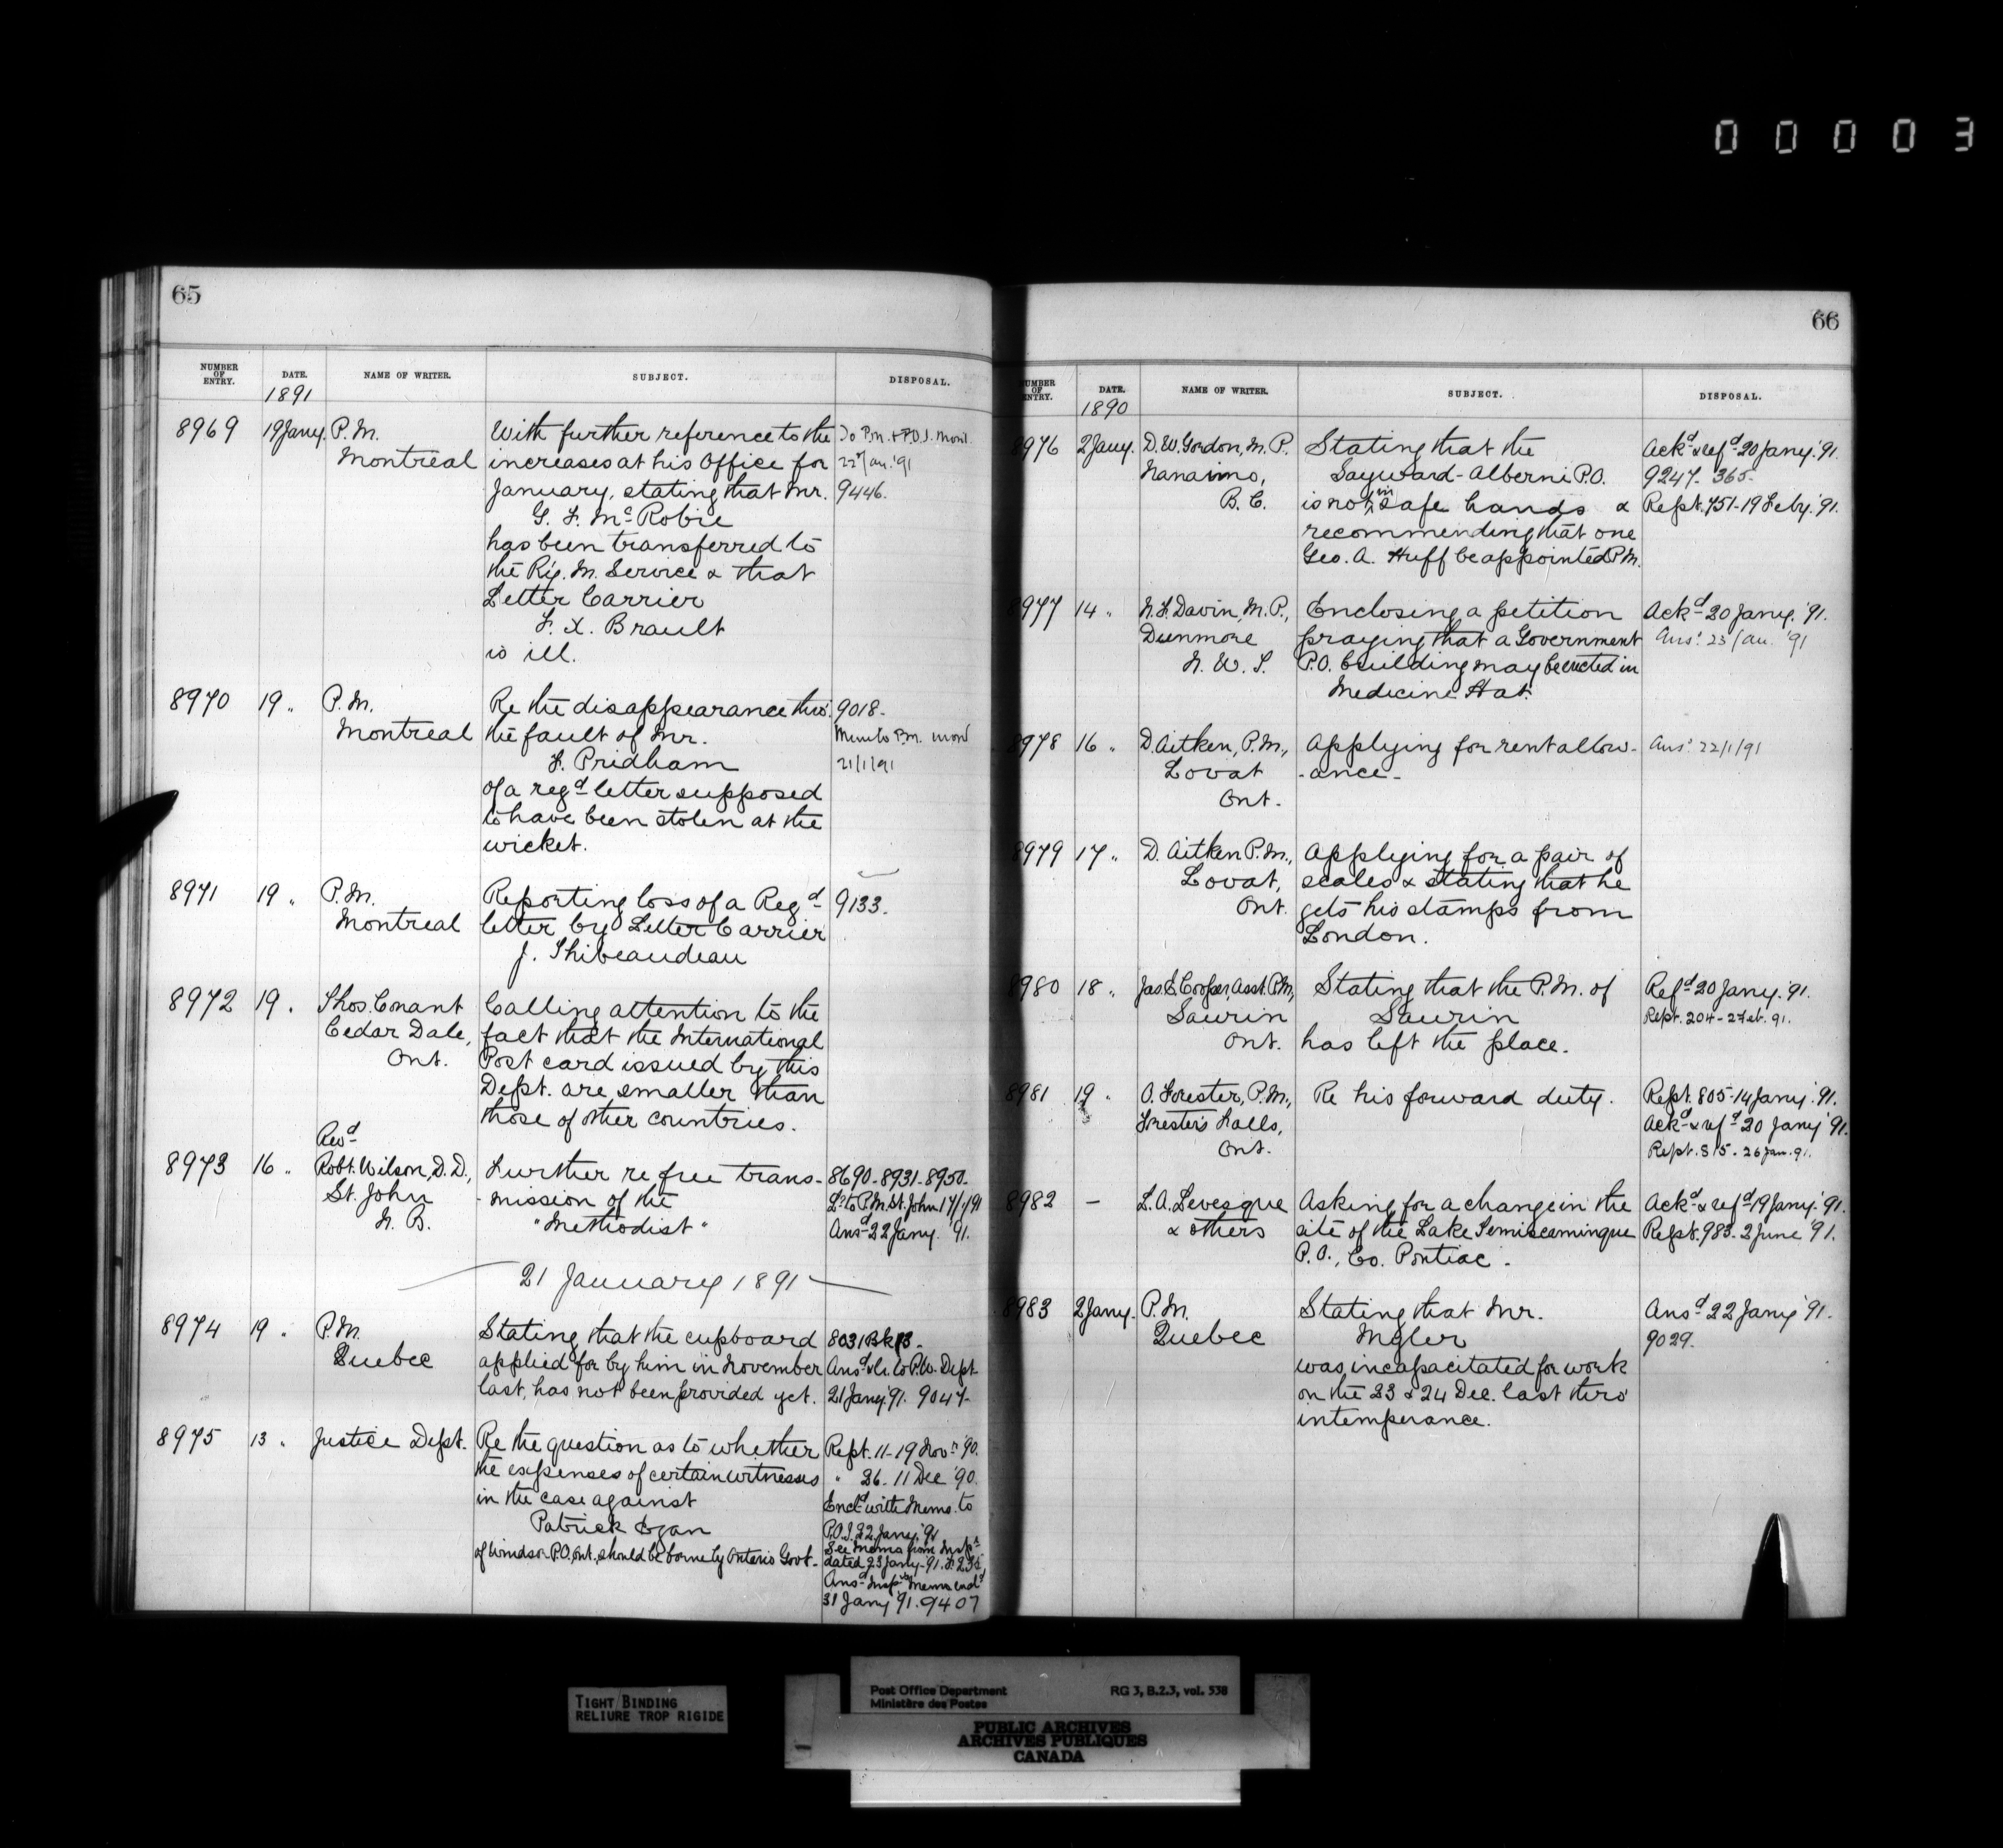 00003
65
NUMBER OF ENTRY. DATE. NAME OF WRITER. SUBJECT. DISPOSAL.
1891
8969 19 Jany. P.M. With further reference to the To P.M. & P.O.I. Mont.
Montreal increases at his Office for 22 Jan. '91
January, stating that Mr. 9446.
G. F. McRobie
has been transferred to
the Ry. M. Service & that
Letter Carrier
F. X. Brault
is ill.
8970 19 " P.M. Re the disappearance thro' 9018-
Montreal the fault of Mr. Memo to P.M. Mont
F. Pridham 21/1/91
of a regd letter supposed
to have been stolen at the
wicket.
8971 19 " P.M. Reporting loss of a Regd 9133.
Montreal letter by Letter Carrier
J. Thibeaudeau
8972 19 " Thos. Conant Calling attention to the
Cedar Dale, fact that the International
Ont. Post card issued by this
Dept. are smaller than
those of other countries.
Revd
8973 16 " Robt. Wilson, D.D., Further re free trans- 8690-8931-8950-
St. John -mission of the Lr to P.M. St. John 17/1/91
N. B. "Methodist" Ansd 22 Jany. '91.
21 January 1891
8974 19 " P.M. Stating that the cupboard 8031 Bk 13-
Quebec applied for by him in November Ansd & Lr. to P.W. Dept
last, has not been provided yet. 21 Jany '91. 9047-
8975 13 " Justice Dept. Re the question as to whether Rept. 11-19 Novr '90.
the expenses of certain witnesses " 26-11 Dec '90.
in the case against Encld with Memo. to
Patrick Egan P.O.I. 22 Jany. '91
of Windsor P.O. Ont. should be borne by Ontario Govt- See Memo from Inspr
dated 23 Jany-'91.
Ansd Inspr's Memo encld
31 Jany '91. 9407
66
NUMBER OF ENTRY. DATE. NAME OF WRITER. SUBJECT. DISPOSAL.
1890
8976 2 Jany. D.W. Gordon, M.P. Stating that the Ackd & refd 20 Jany. '91.
Nanaimo, Sayward-Alberni P.O. 9247-365-
B.C. is not in safe hands & Rept. 751-19 Feby. '91.
recommending that one
Geo. A. Huff be appointed P.M.
8977 14 " N.F. Davin, M.P., Enclosing a petition Ackd 20 Jany. '91.
Dunmore praying that a Government Ansd 23 Jan. '91
N. W. T. P.O. building may be erected in
Medicine Hat.
8978 16 " D. Aitken, P.M., Applying for rent allow- Ansd 22/1/91
Lovat -ance-
Ont.
8979 17 " D. Aitken P.M., Applying for a pair of
Lovat, scales & stating that he
Ont. gets his stamps from
London.
8980 18 " Jas S. Cooper, Asst. P.M., Stating that the P.M. of Refd 20 Jany. '91.
Saurin Saurin Rept. 204-2 Feb. 91.
Ont. has left the place.
8981 19 " O. Forester, P.M., Re his forward duty. Rept. 805-14 Jany. '91.
Forester's Falls, Ackd & refd 20 Jany '91.
Ont. Rept. 815-26 Jan. 91.
8982 - L.A. Levesque Asking for a change in the Ackd & refd 19 Jany. '91.
& others site of the Lake Temiscamingue Rept. 983-2 June '91.
P.O., Co. Pontiac.
8983 2 Jany. P.M. Stating that Mr. Ansd 22 Jany '91.
Quebec Myler 9029.
was incapacitated for work
on the 23 & 24 Dec. last thro'
intemperance.
TIGHT BINDING
RELIURE TROP RIGIDE
Post Office Department RG 3, B.2.3, vol. 538
Ministère des Postes
PUBLIC ARCHIVES
ARCHIVES PUBLIQUES
CANADA